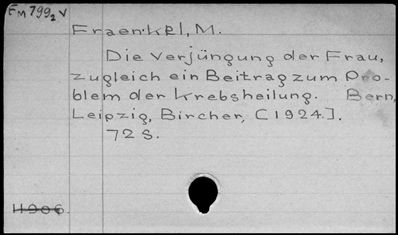 FM 799₂ V
Fraenkel, M.
Die Verjüngung der Frau,
zugleich ein Beitrag zum Pro-
blem der Krebsheilung. Bern,
Leipzig, Bircher, [1924].
72 S.
11906.